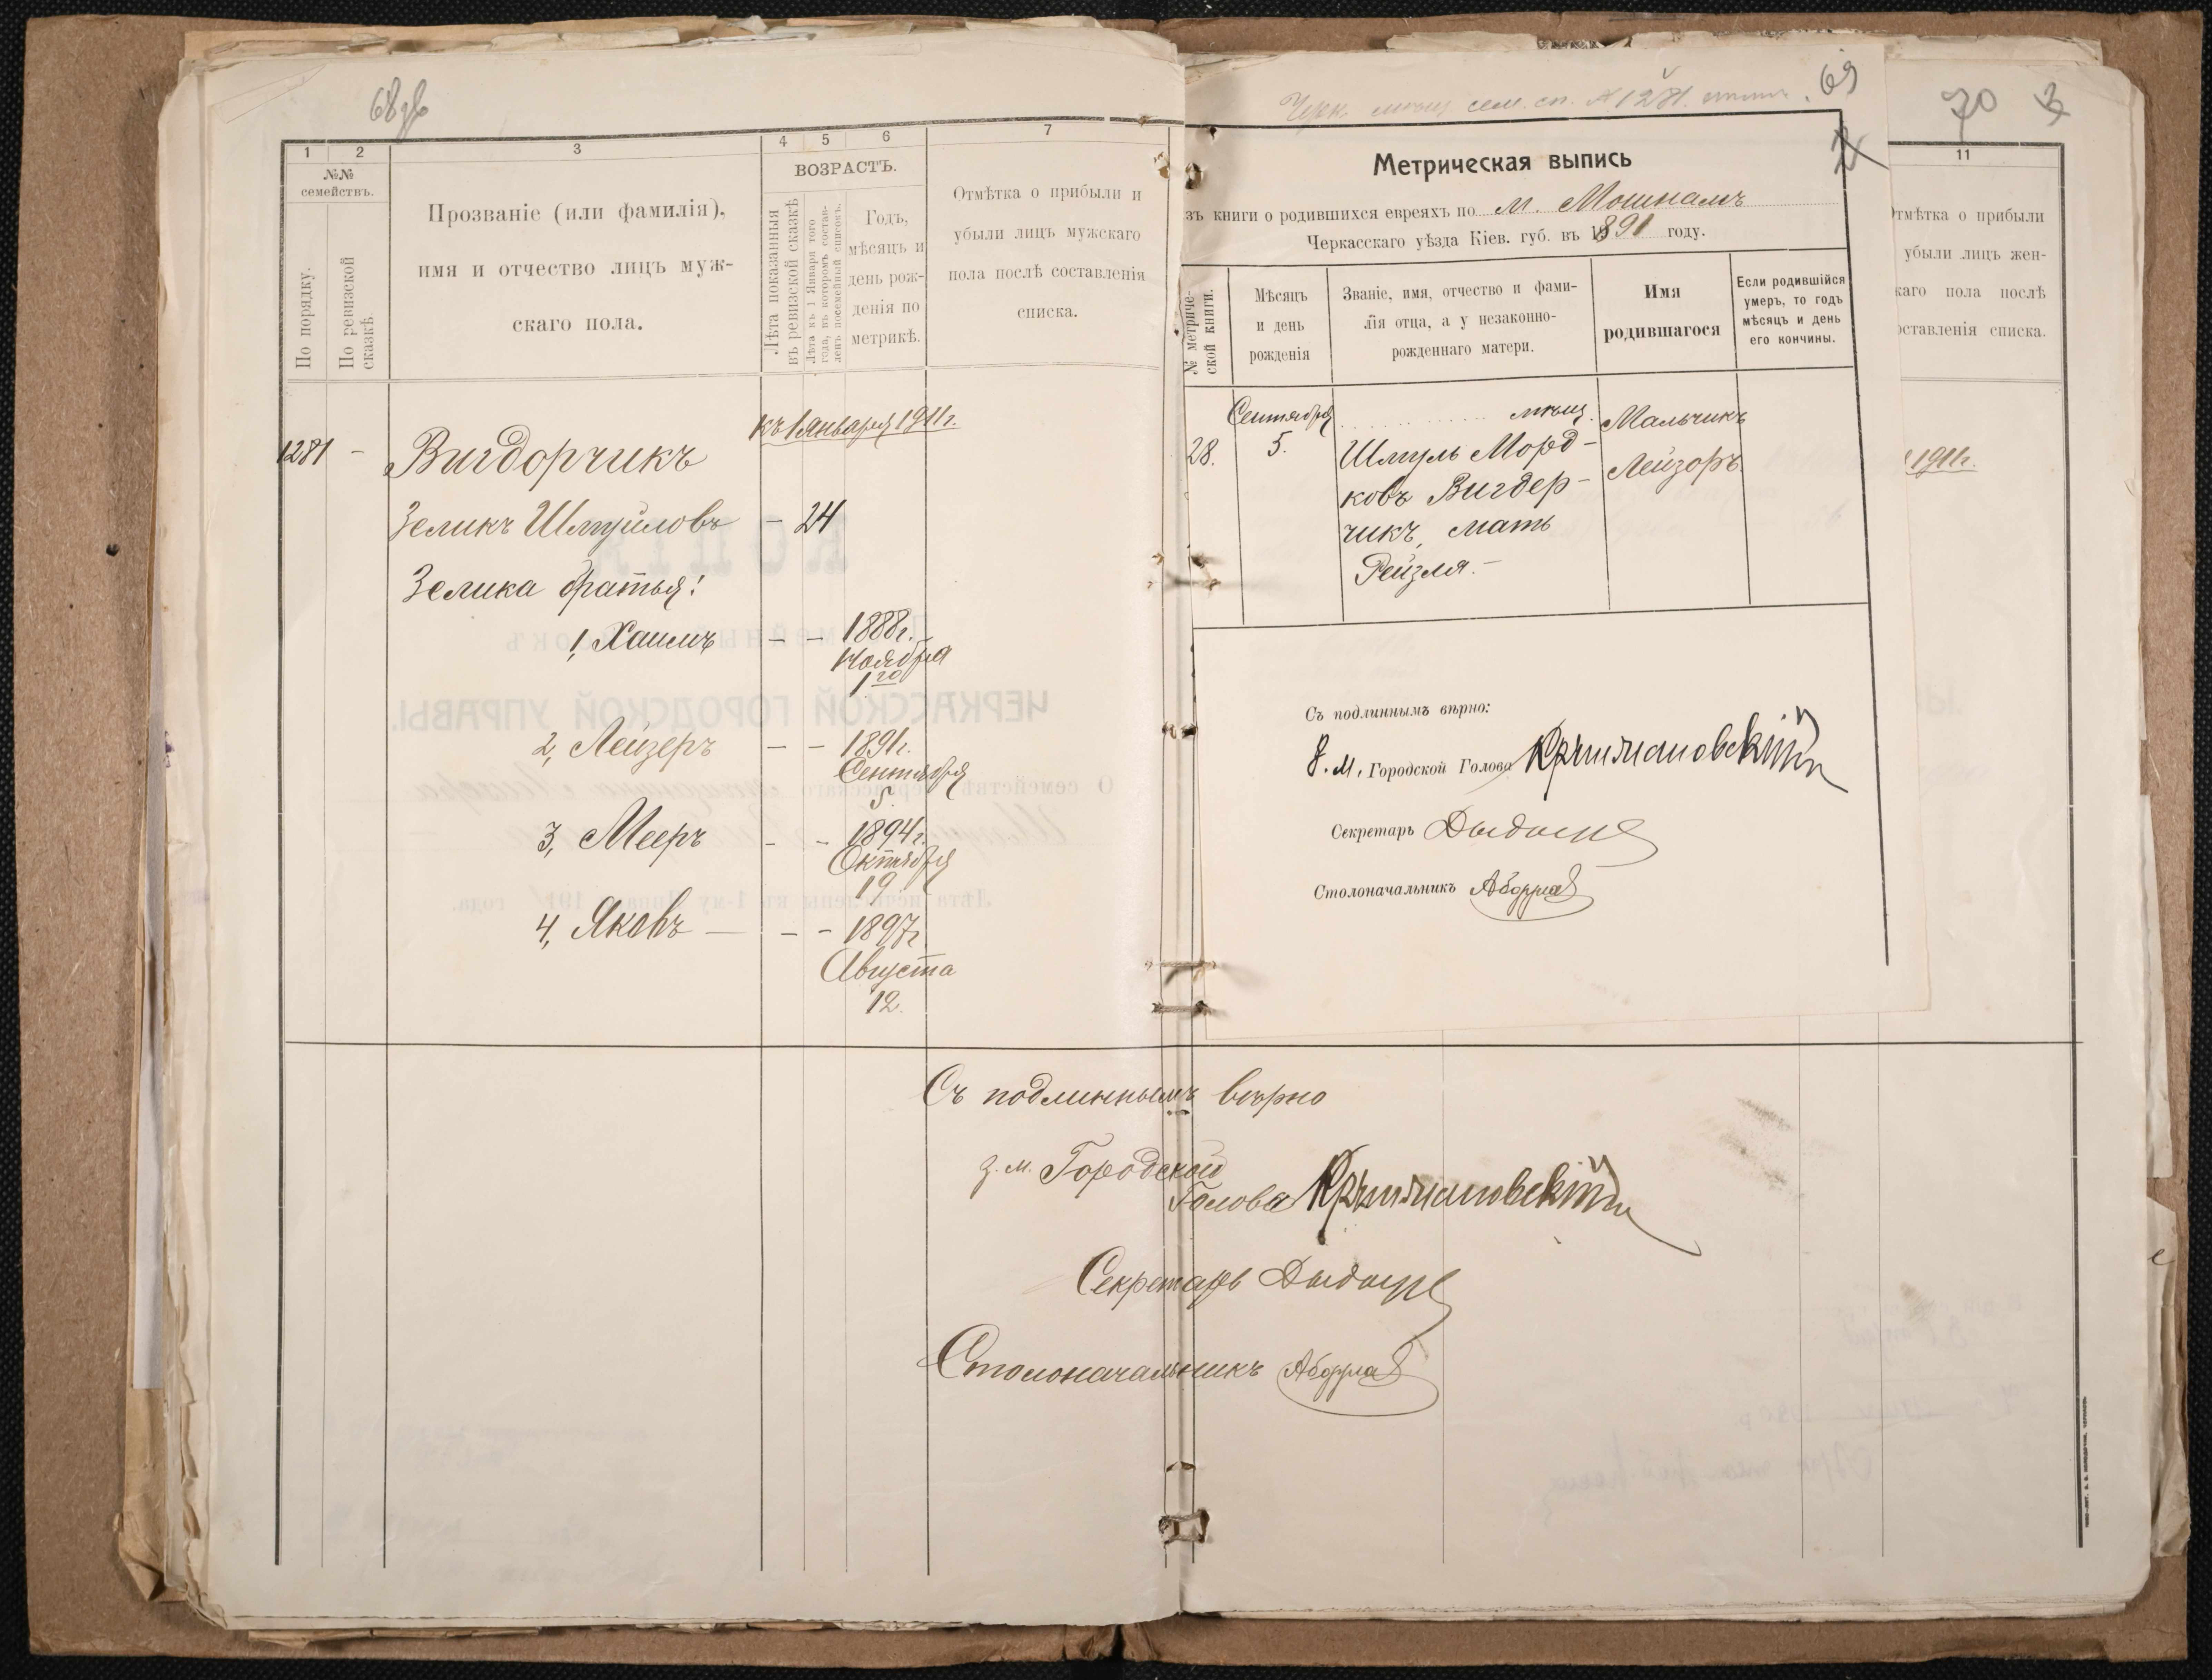 68зв
1 2 3 4 5 6 7
№№ семействъ.
По порядку.
По ревизской сказкѣ.
Прозваніе (или фамилія),
имя и отчество лицъ муж-
скаго пола.
ВОЗРАСТЪ.
Лѣта показанныя въ ревизской сказкѣ
Лѣта къ 1 Января того года, въ которомъ составленъ посемейный списокъ.
Годъ,
мѣсяцъ и
день рож-
денія по
метрикѣ.
Отмѣтка о прибыли и
убыли лицъ мужскаго
пола послѣ составленія
списка.
къ 1 января 1911г.
1281 – Вигдорчикъ
Зеликъ Шмуйловъ – 24
Зелика братья:
1, Хаимъ – – 1888г.
Ноября
1го
2, Лейзеръ – – 1891г.
Сентября
5.
3, Мееръ – – 1894г.
Октября
19.
4, Яковъ – – – 1897г
Августа
12.
Съ подлиннымъ вѣрно
з. м. Городской
Голова Крыжановскій
Секретарь
Столоначальникъ
Черк. мѣщ. сем. сп. № 1281.
69
2
Метрическая выпись
зъ книги о родившихся евреяхъ по м. Мошнамъ
Черкасскаго уѣзда Кіев. губ. въ 1891 году.
№ метриче-
ской книги.
Мѣсяцъ
и день
рожденія
Званіе, имя, отчество и фами-
лія отца, а у незаконно-
рожденнаго матери.
Имя
родившагося
Если родившійся
умеръ, то годъ
мѣсяцъ и день
его кончины.
28.
Сентября
5.
мѣщ.
Шмуль Морд-
ковъ Вигдер-
чикъ, мать
Рейзля. –
Мальчикъ
Лейзоръ
Съ подлиннымъ вѣрно:
З. М. Городской Голова Крыжановскій
Секретарь
Столоначальникъ
70 3
11
Отмѣтка о прибыли
убыли лицъ жен-
скаго пола послѣ
оставленія списка.
1911г.